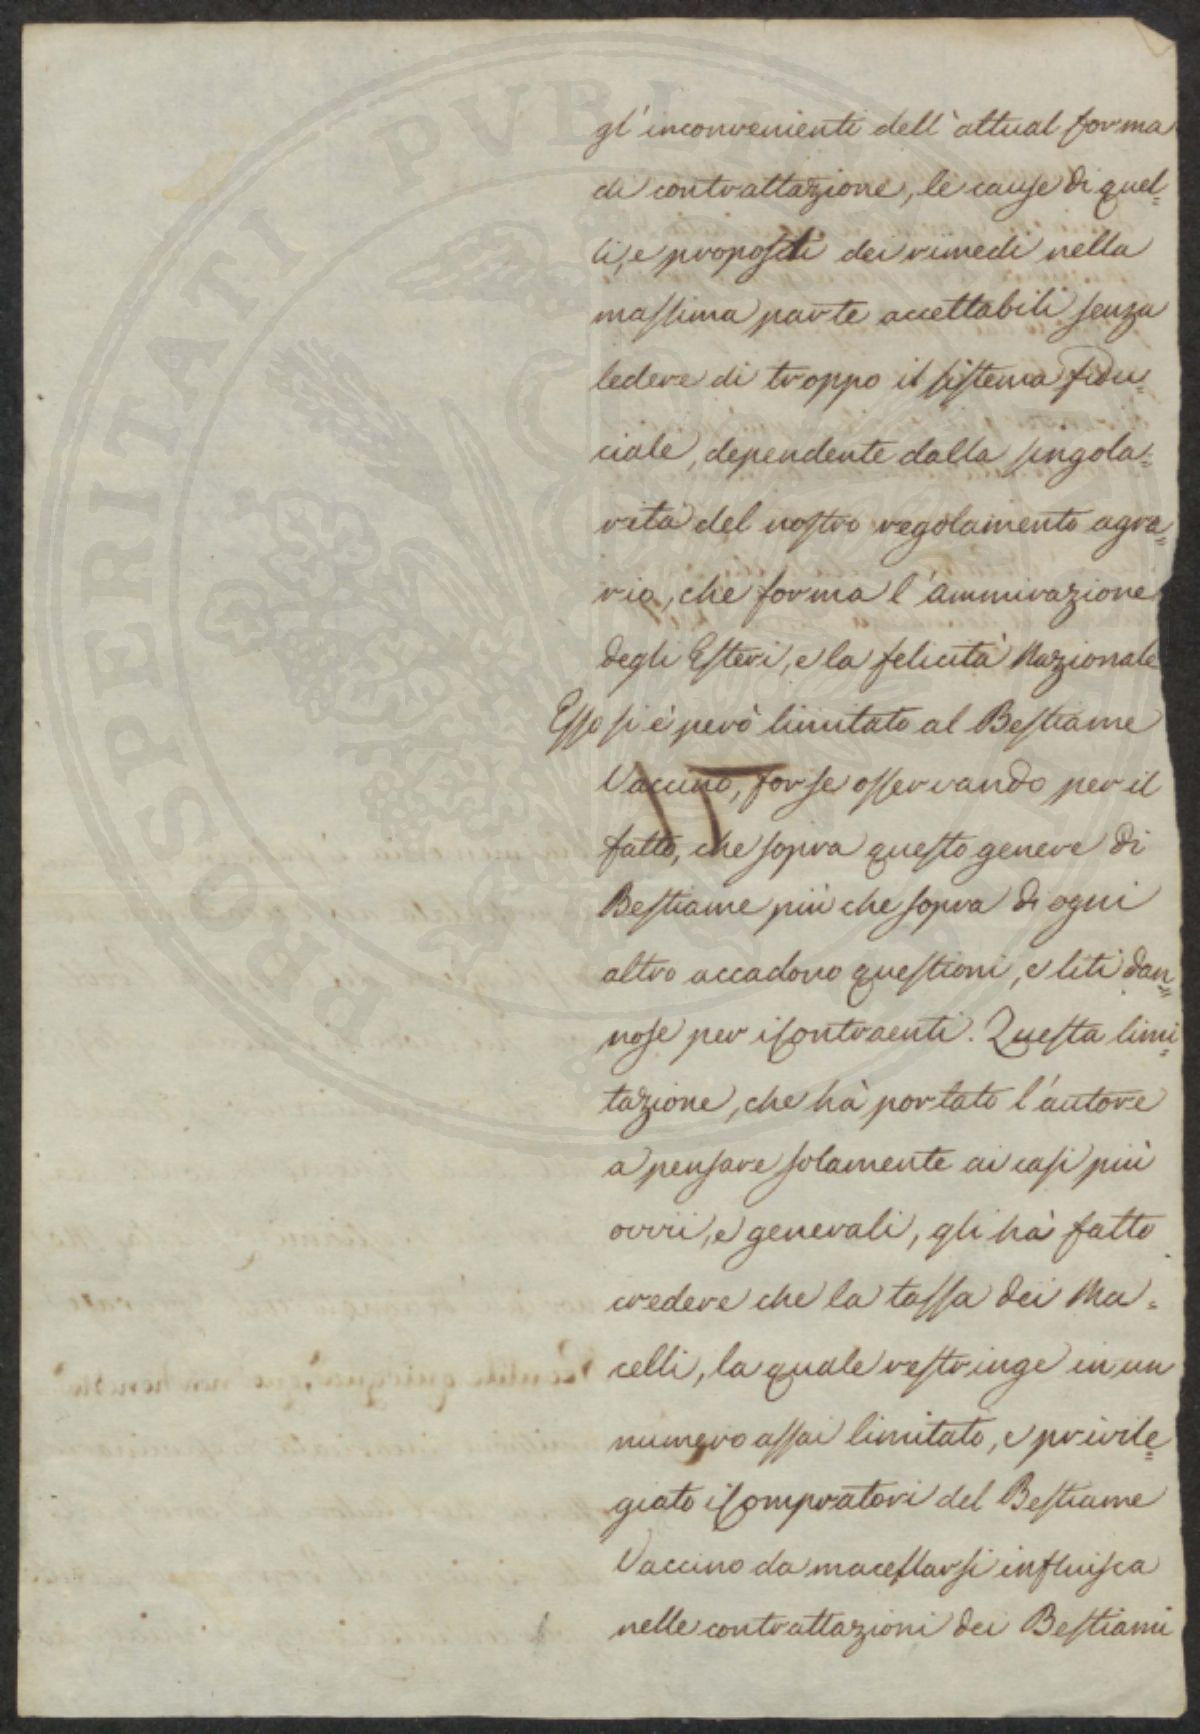 gl'inconvenienti dell'attual forma
di contrattazione, le cause di quel=
li, e propositi dei rimedi nella
massima parte accettabili senza
ledere di troppo il sistema fidu=
ciale, dependente dalla singola=
rità del nostro regolamento agra=
rio, che forma l'ammirazione
degli Esteri, e la felicità Nazionale
Esso si è però limitato al Bestiame
Vaccino, forse osservando per il
fatto, che sopra questo genere di
Bestiame più che sopra di ogni
altro accadono questioni, e liti dan=
nose per i Contraenti. Questa limi=
tazione, che hà portato l'autore
a pensare solamente ai casi più
ovvii, e generali, gli hà fatto
credere che la tassa dei Ma=
celli, la quale restringe in un
numero assai limitato, e privile=
giato i Compratori del Bestiame
Vaccino da macellarsi influisca
nelle contrattazioni dei Bestiami
PROSPERITATI PVBLI